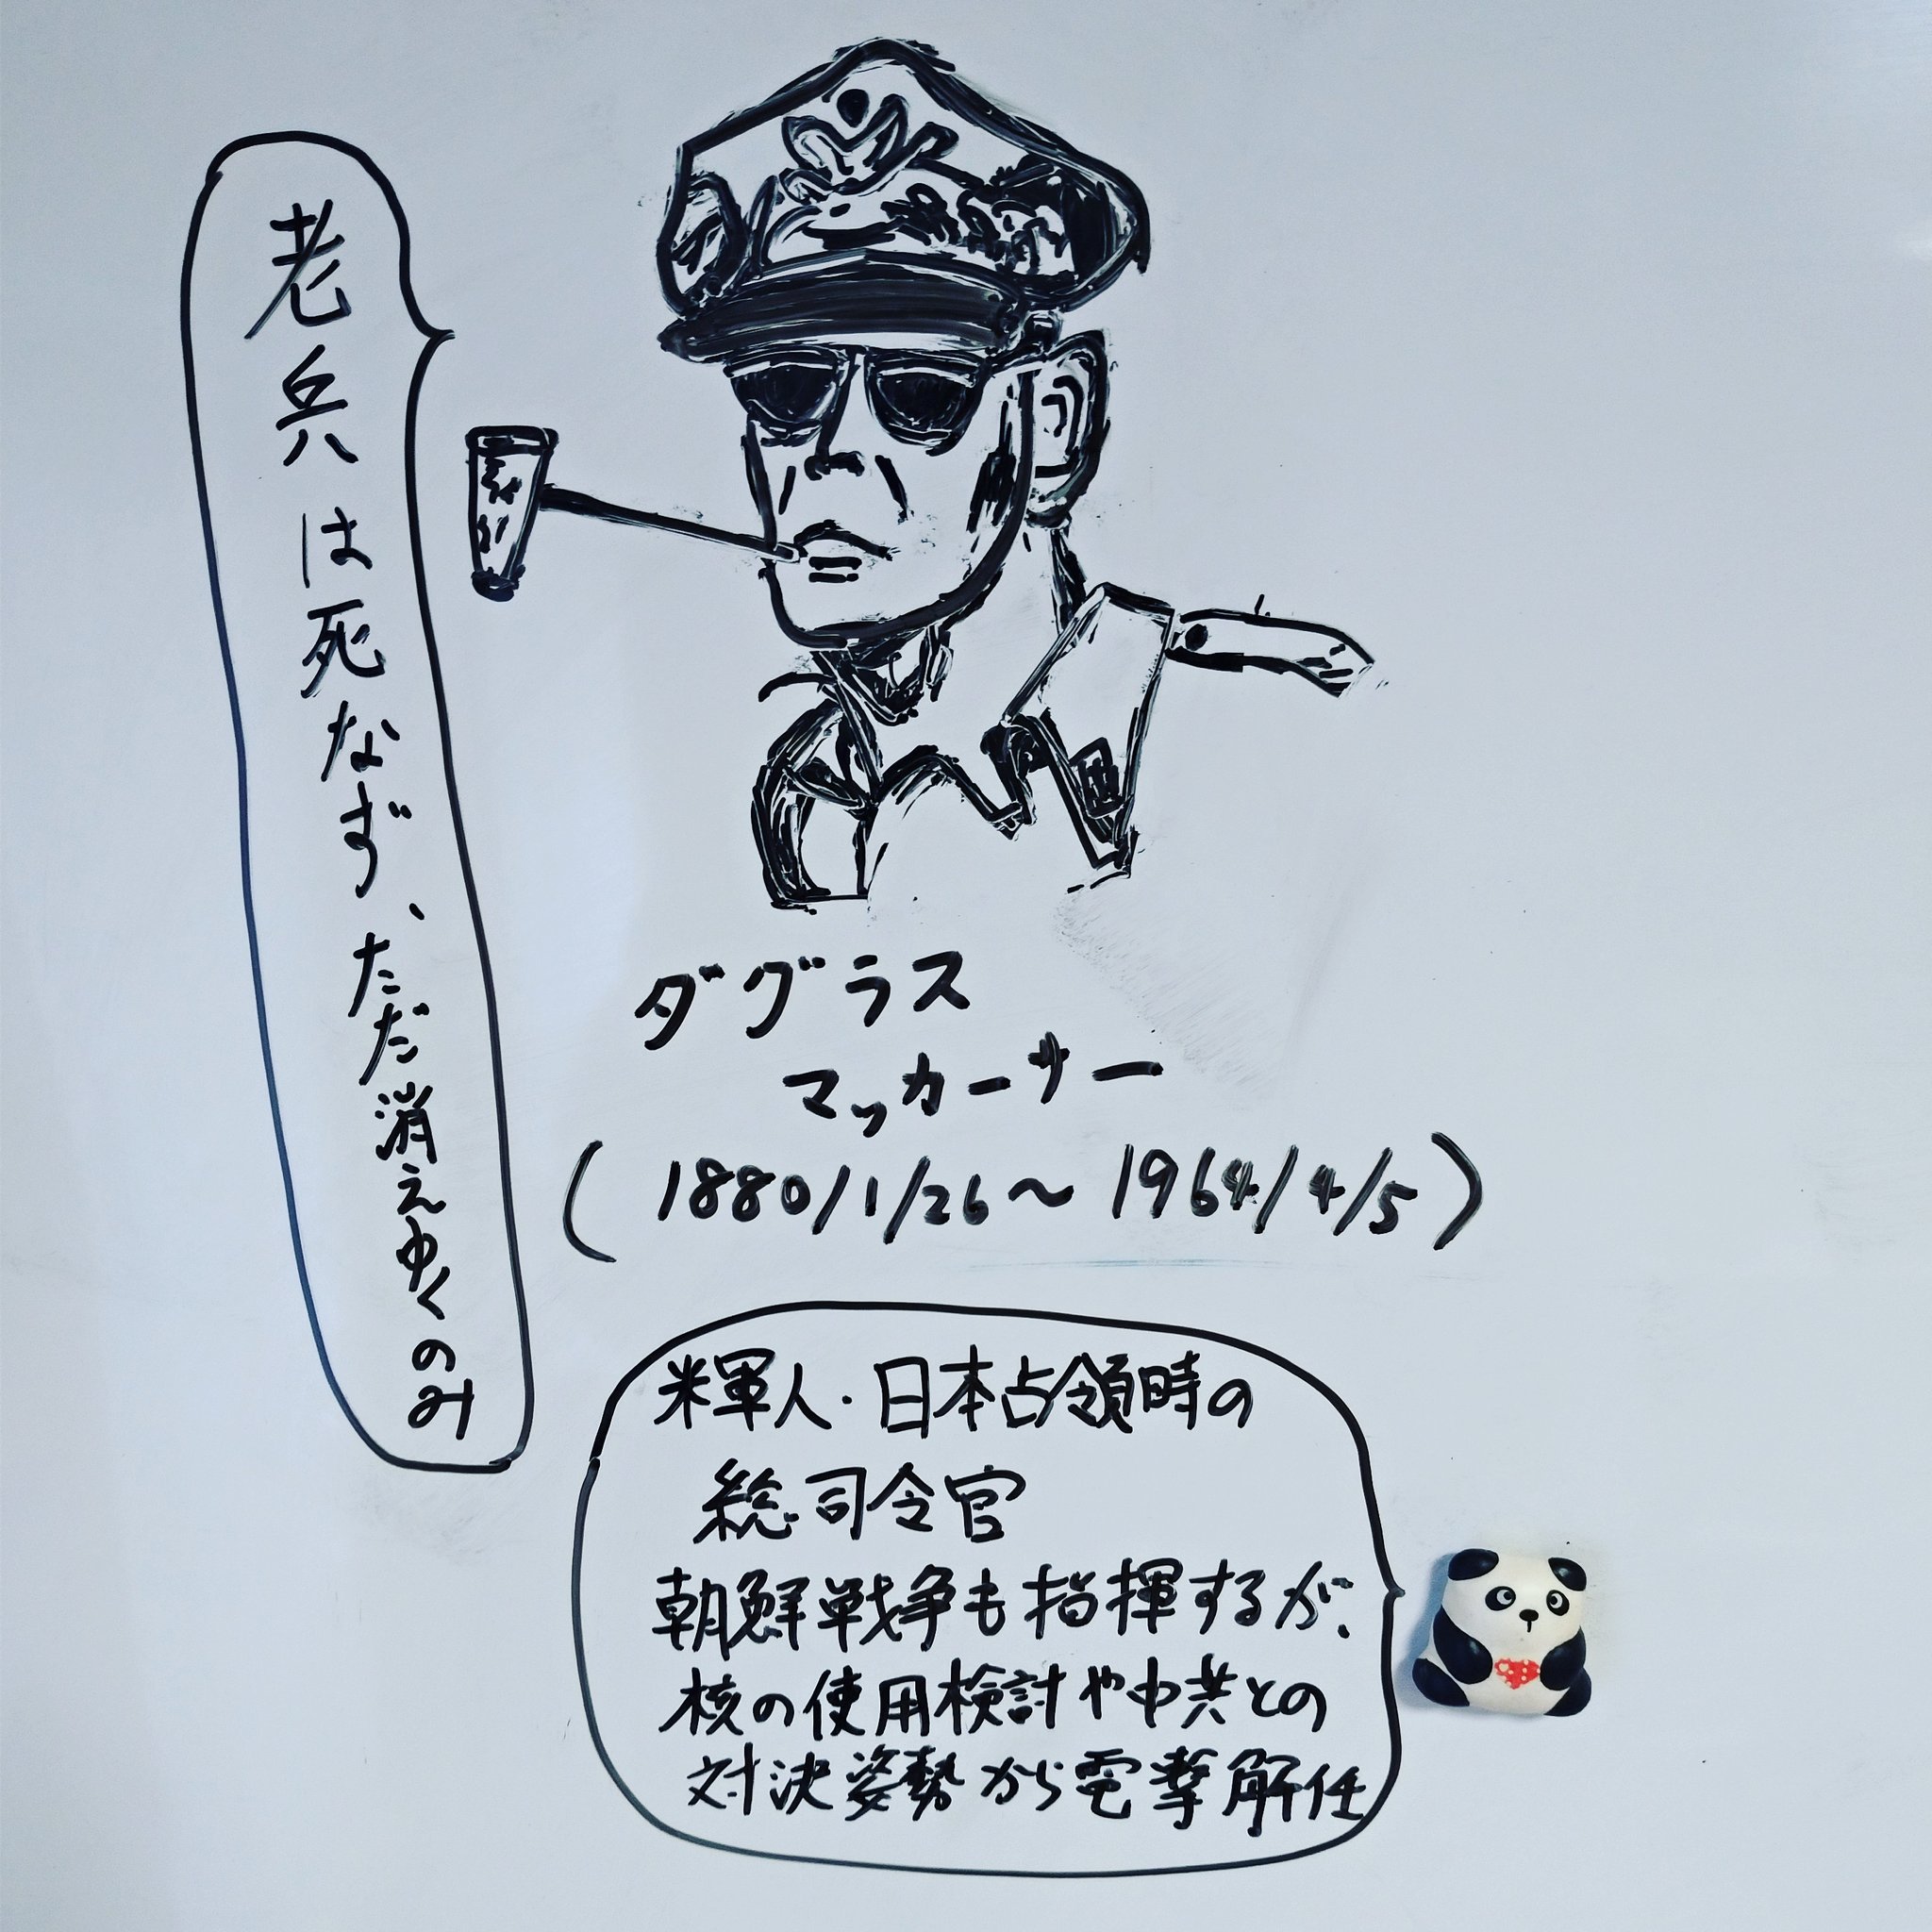 老兵は死なず、ただ消えゆくのみ
ダグラス
マッカーサー
(1880/1/26～1964/4/5)
米軍人・日本占領時の
総司令官
朝鮮戦争も指揮するが、
核の使用検討や中共との
対決姿勢から電撃解任